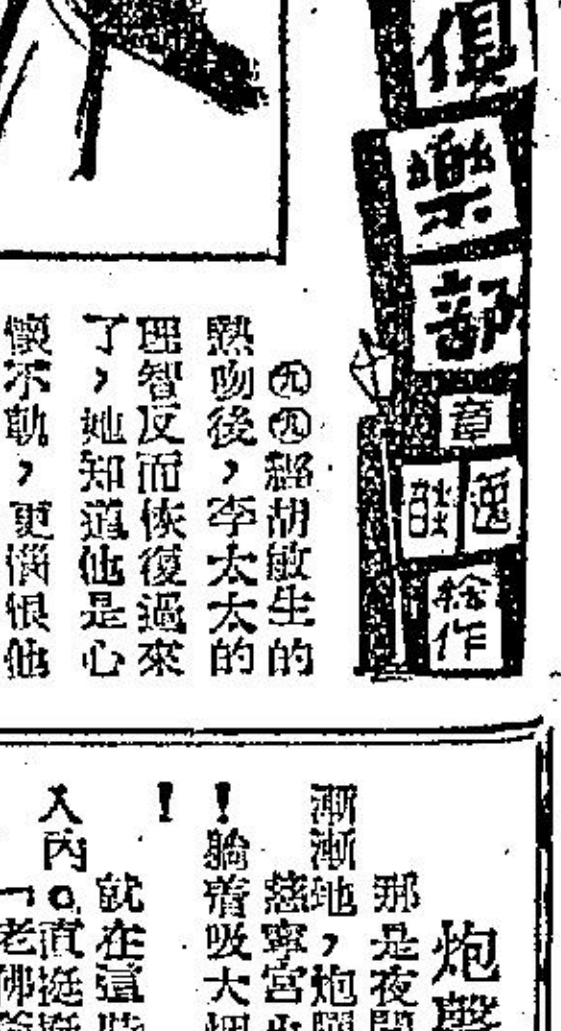 俱樂部
章
逸
繪作
㊈㊈經胡敏生的
熱吻後，李太太的
理智反而恢復過來
了，她知道他是心
懷不軌，更惱恨他
炮聲
那是夜間
漸漸地，炮聲
慈寧宮
！躺着吸大烟
！
就在這時
入內。直挺挺
「老佛爺